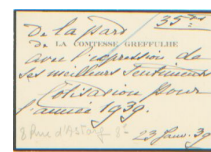 De la part 35 frs
De LA COMTESSE GREFFULHE
avec l'expression de
ses meilleurs sentiments
Cotisation pour
l'année 1939.
8 Rue d'Astorg 8e
23 Janv. 39